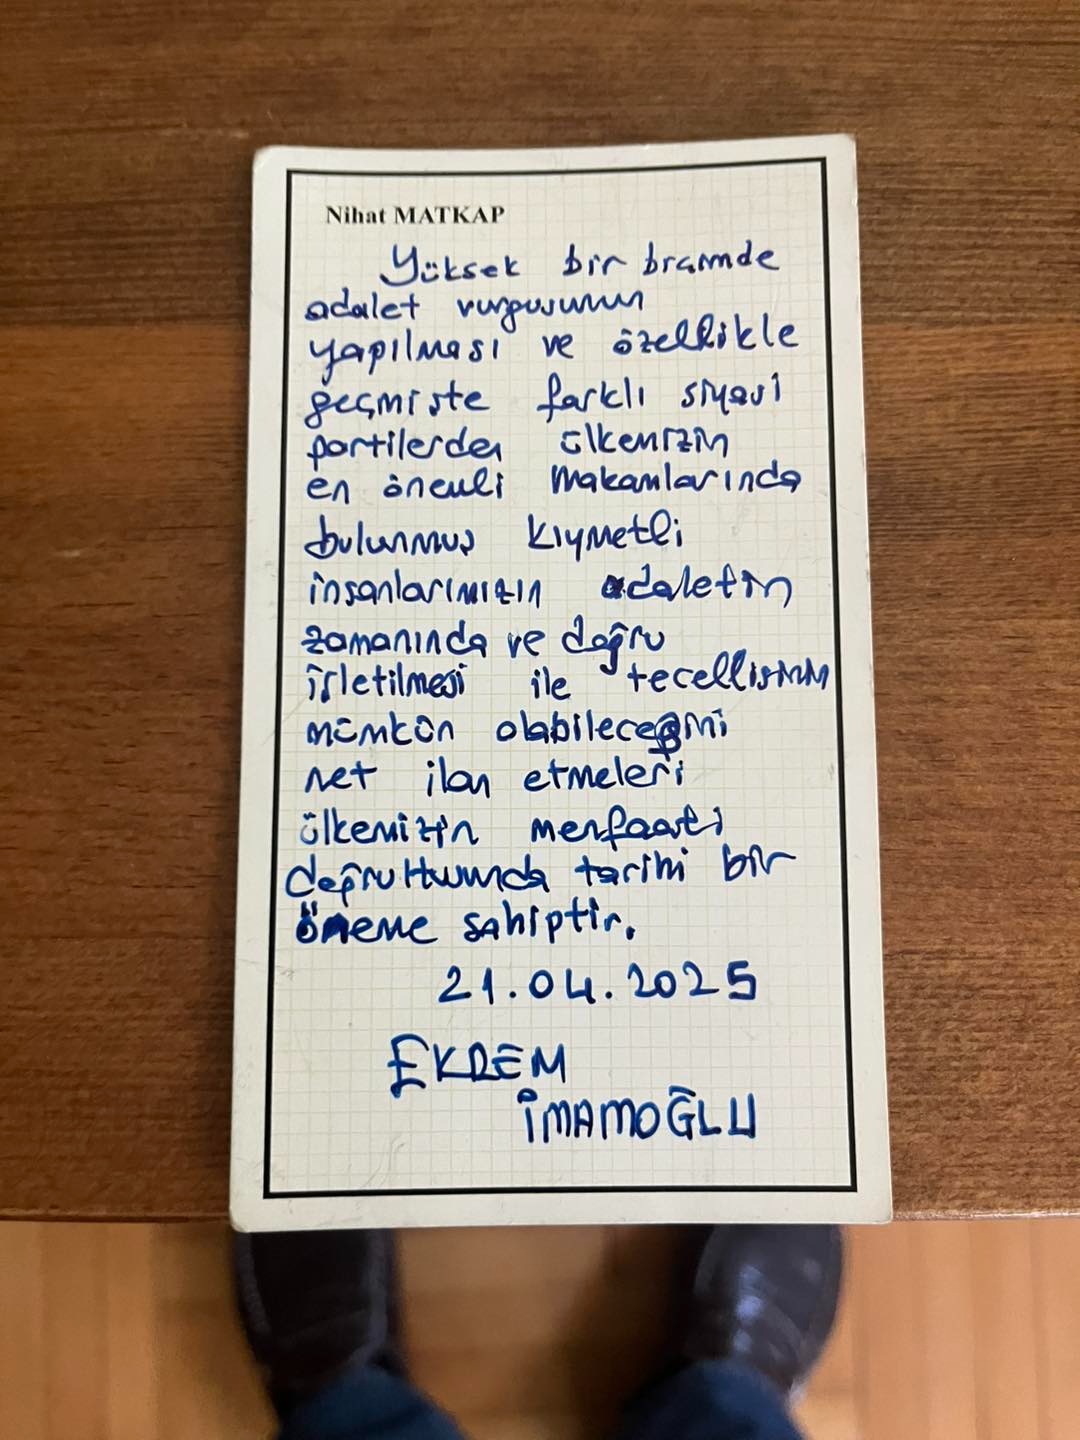 Nihat MATKAP
Yüksek bir bramde
adalet vurgusunun
yapılması ve özellikle
geçmişte farklı siyasi
partilerden ülkemizin
en önemli makamlarında
bulunmuş kıymetli
insanlarımızın adaletin
zamanında ve doğru
işletilmesi ile tecellisinin
mümkün olabileceğini
net ilan etmeleri
ülkemizin menfaati
doğrultusunda tarihi bir
öneme sahiptir.
21.04.2025
EKREM
İMAMOĞLU